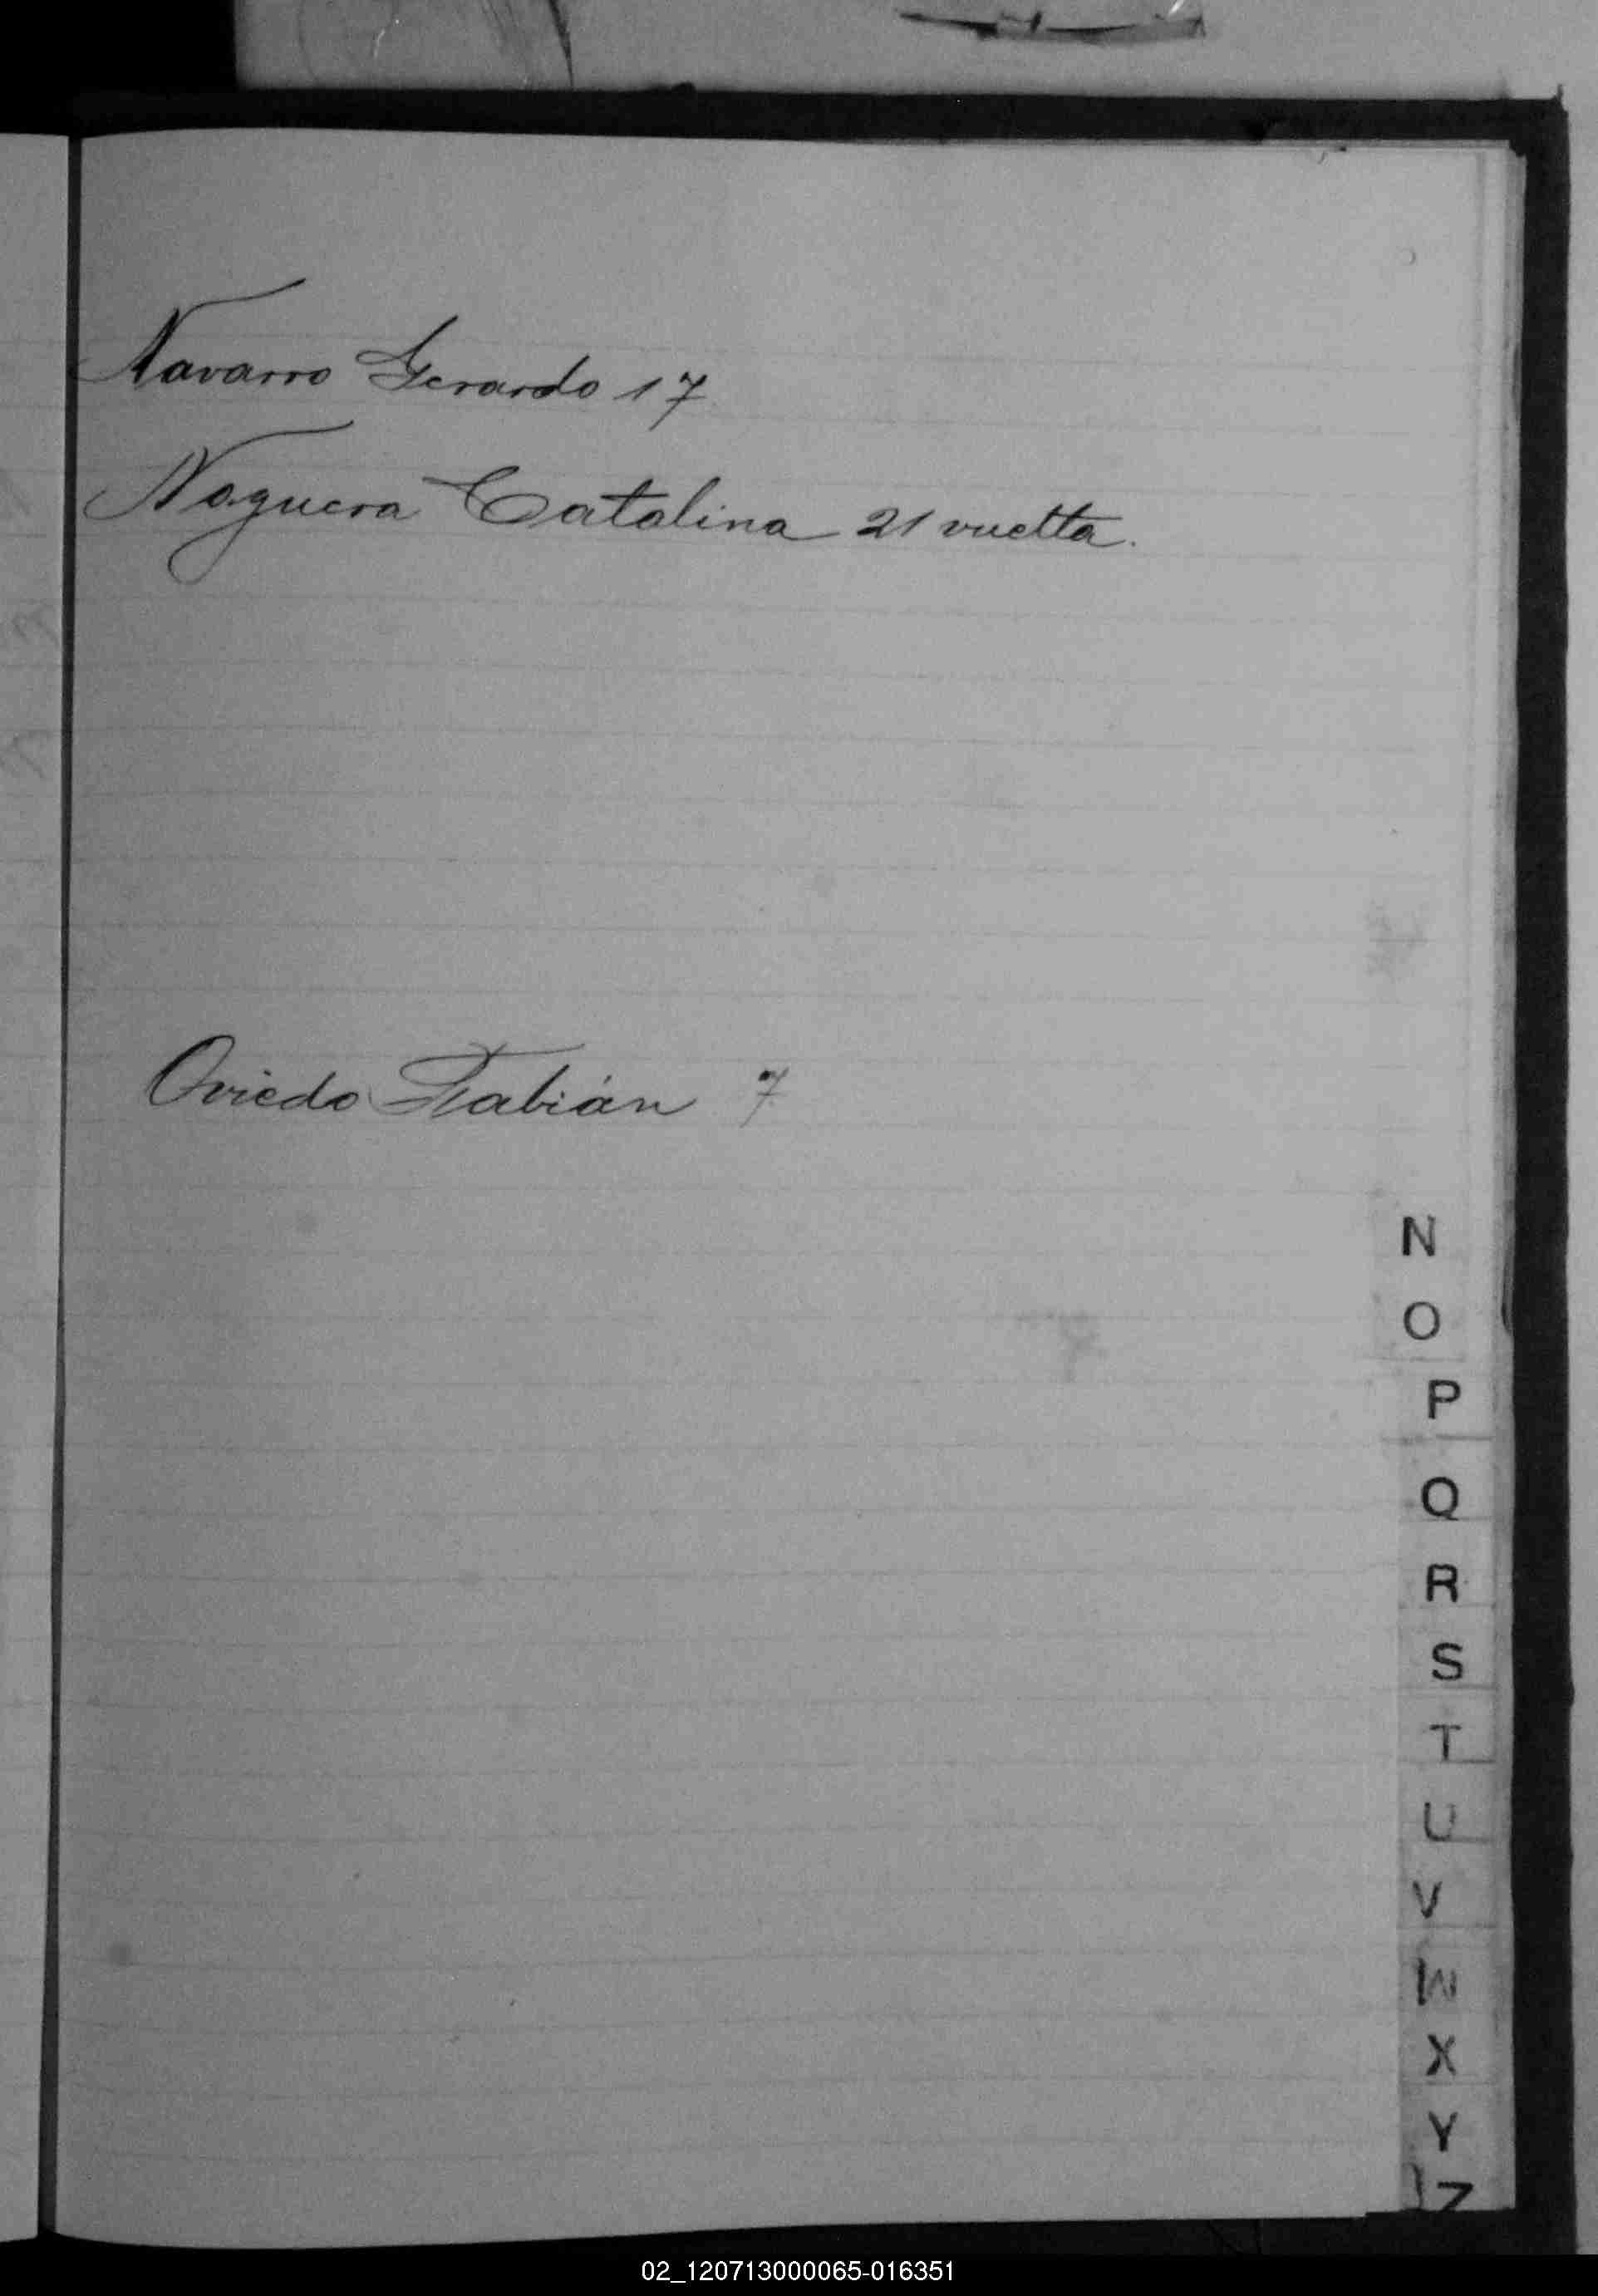 Navarro Gerardo 17
Noguera Catalina 21 vuelta.
Oviedo Fabián 7
N
O
P
Q
R
S
T
U
V
W
X
Y
Z
02_120713000065-016351